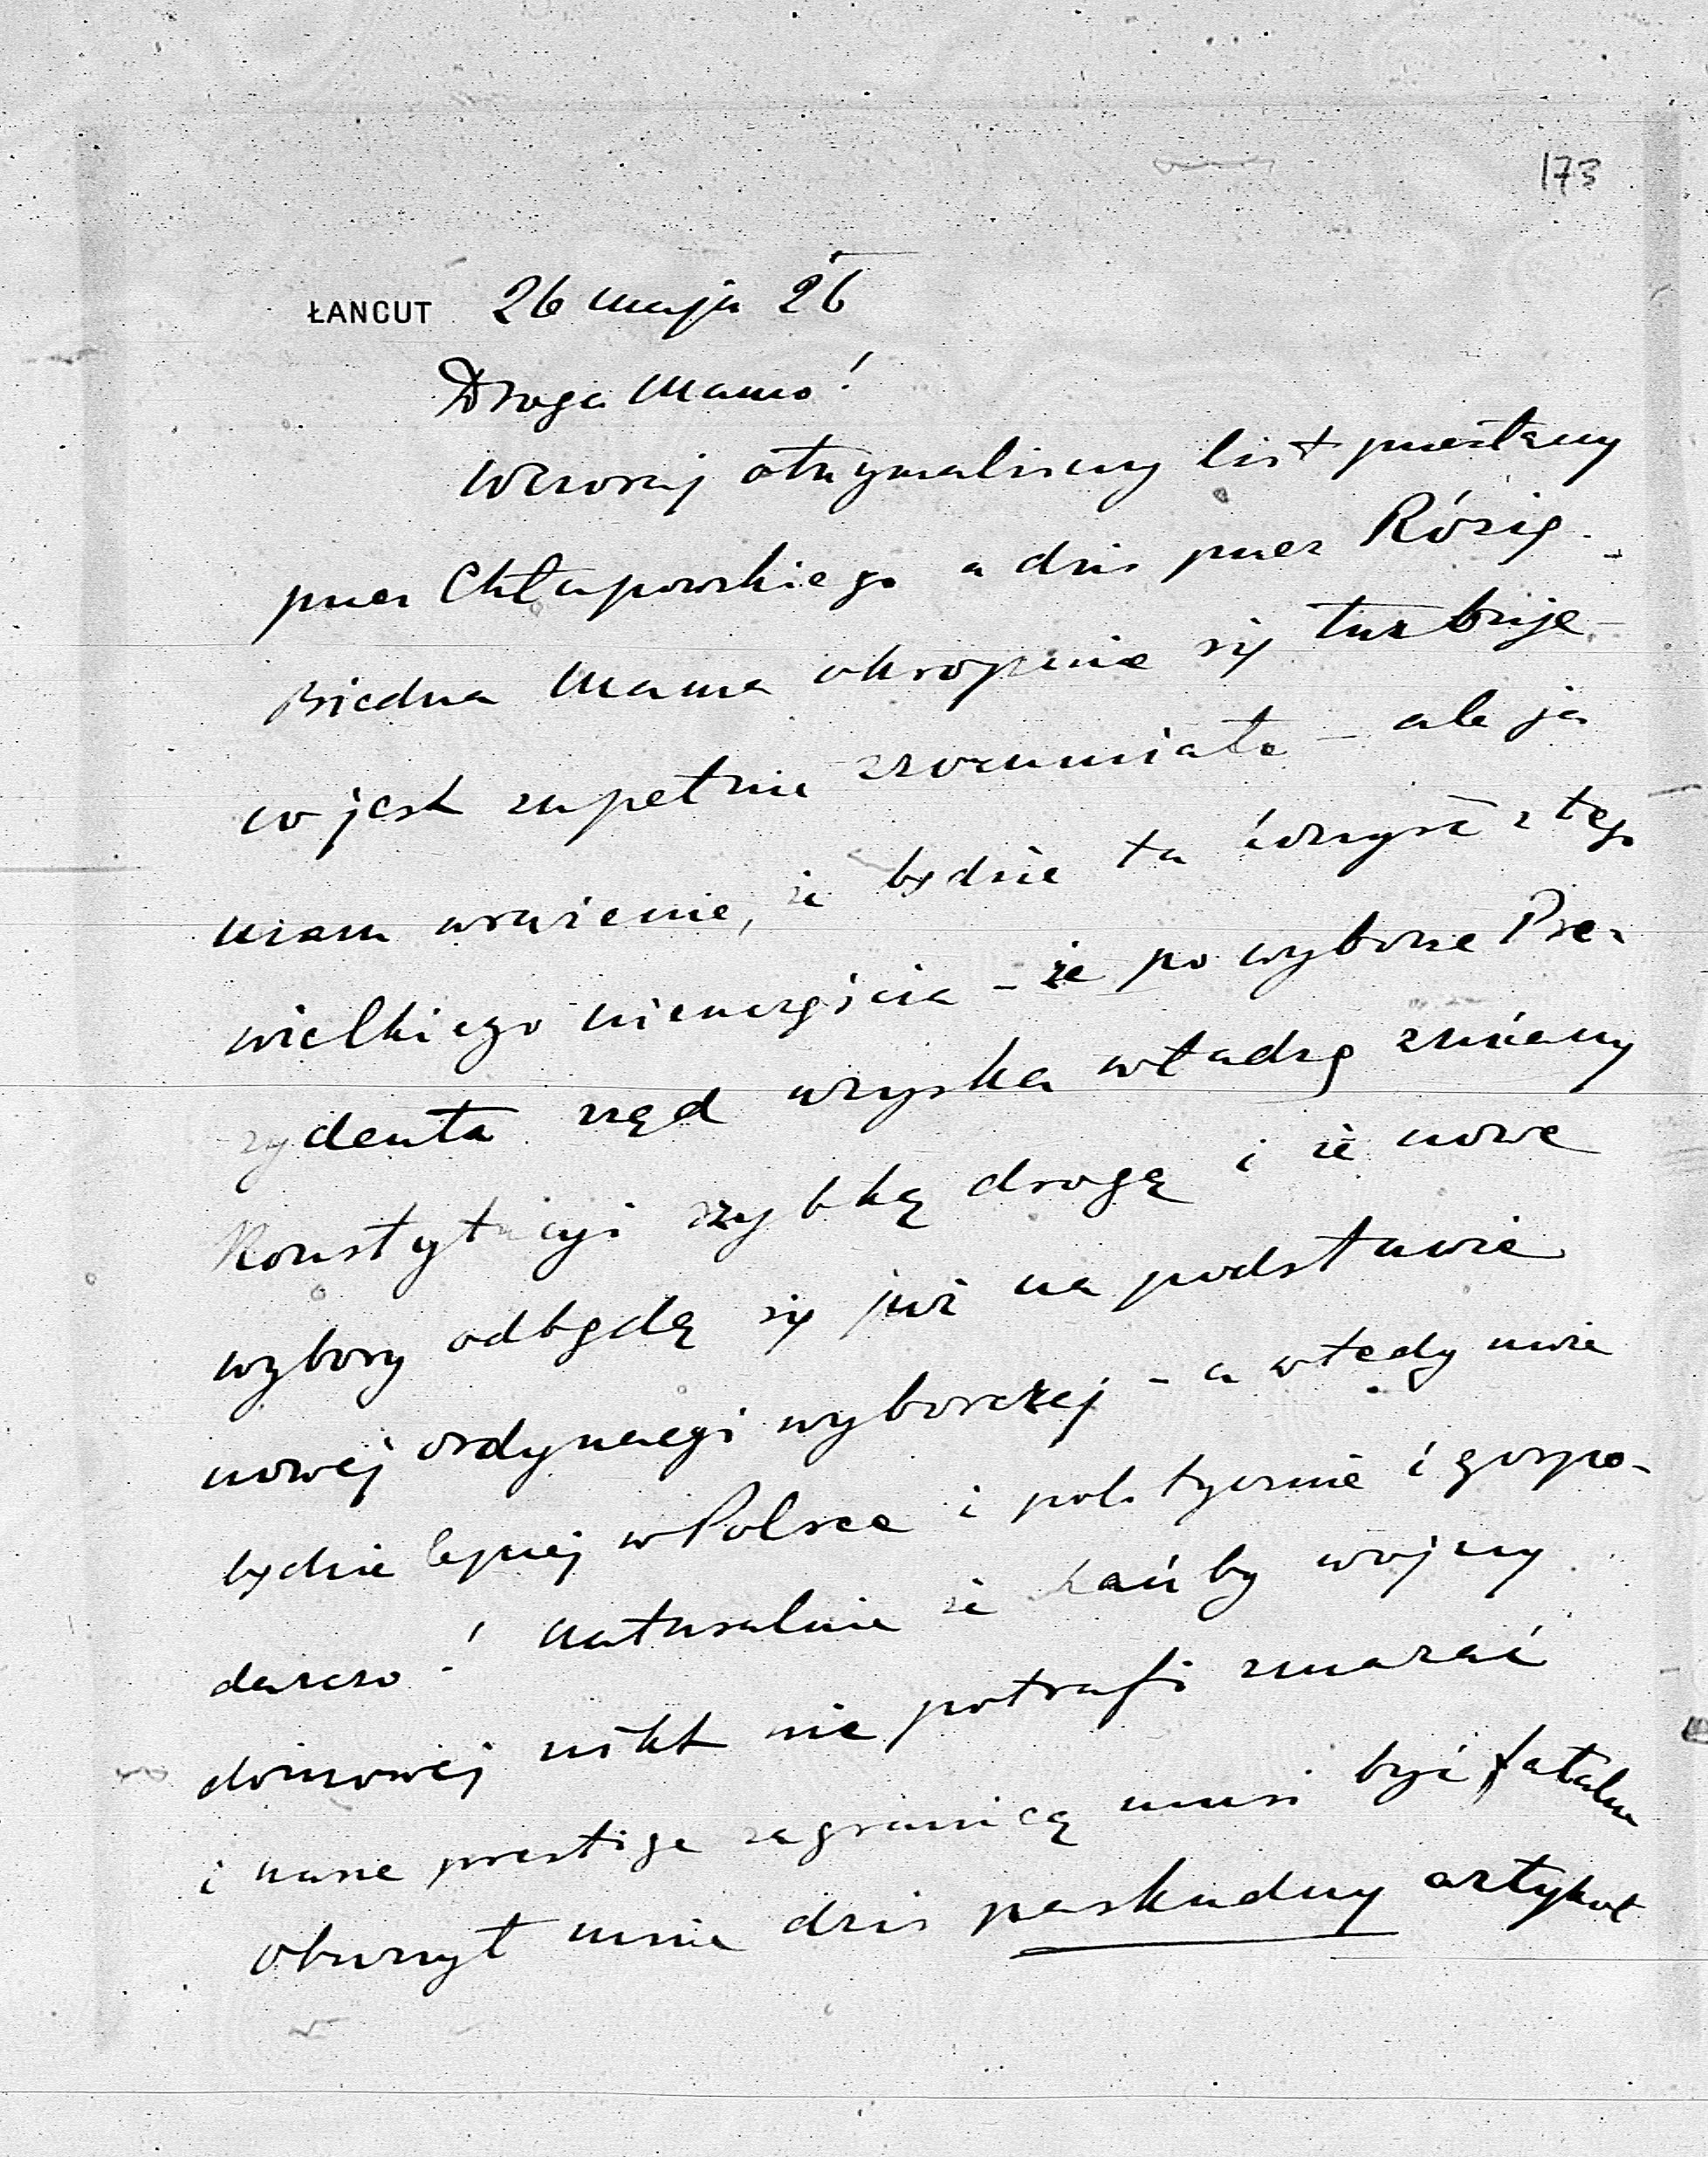 173
ŁANCUT 26 maja 26
Droga Mamo!
Wczoraj otrzymaliśmy list przesłany
przez Chłapowskiego a dziś przez Rózię.
Biedna Mama okropnie się turbuje
co jest zupełnie zrozumiałe – ale ja
mam wrażenie, że będzie ta korzyść z tego
wielkiego nieszczęścia – że po wyborze Pre-
zydenta rząd uzyska władzę zmiany
Konstytucyi szybką drogą i że nowe
wybory odbędą się już na podstawie
nowej ordynacyi wyborczej – a wtedy może
będzie lepiej w Polsce i politycznie i gospo-
darczo! Naturalnie że hańby wojny
domowej nikt nie potrafi zmazać
i nasze prestige zagranicą musi być fatalne
Oburzył mnie dziś paskudny artykuł